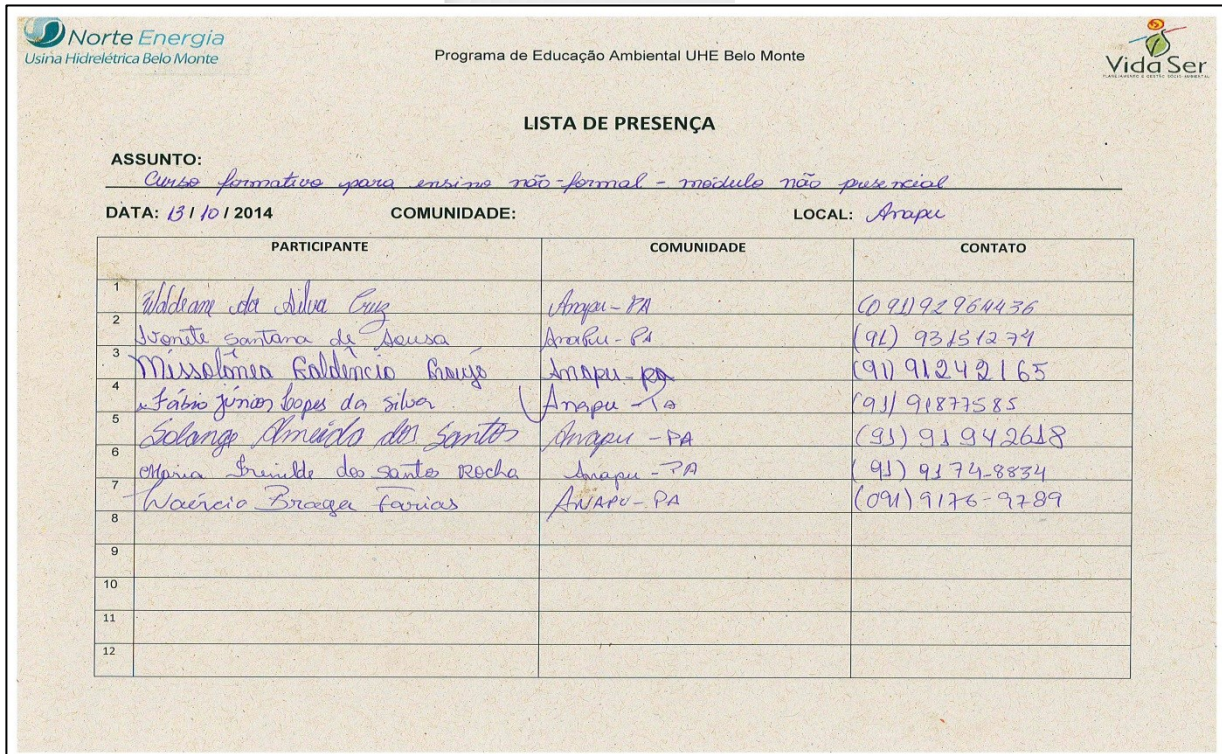 Norte Energia
Usina Hidrelétrica Belo Monte
Programa de Educação Ambiental UHE Belo Monte
Vida Ser
LISTA DE PRESENÇA
ASSUNTO:
Curso formativo para ensino não-formal - módulo não presencial
DATA: 13/10/2014 COMUNIDADE: LOCAL: Anapu
PARTICIPANTE COMUNIDADE CONTATO
1 Waldeane da Silva Cruz Anapu-PA (091)92964436
2 Ivonete Santana de Sousa Anapu-PA (91) 93151279
3 Missolônea Galdêncio Anapu-PA (91) 91242165
4 Fábio júnior Lopes da Silva Anapu-PA (91) 91877585
5 Solange Almeida dos Santos Anapu-PA (91) 91942618
6 Maria dos Santos Rocha Anapu-PA (91) 9174-8834
7 Braga Farias ANAPU-PA (091) 9176-9789
8
9
10
11
12